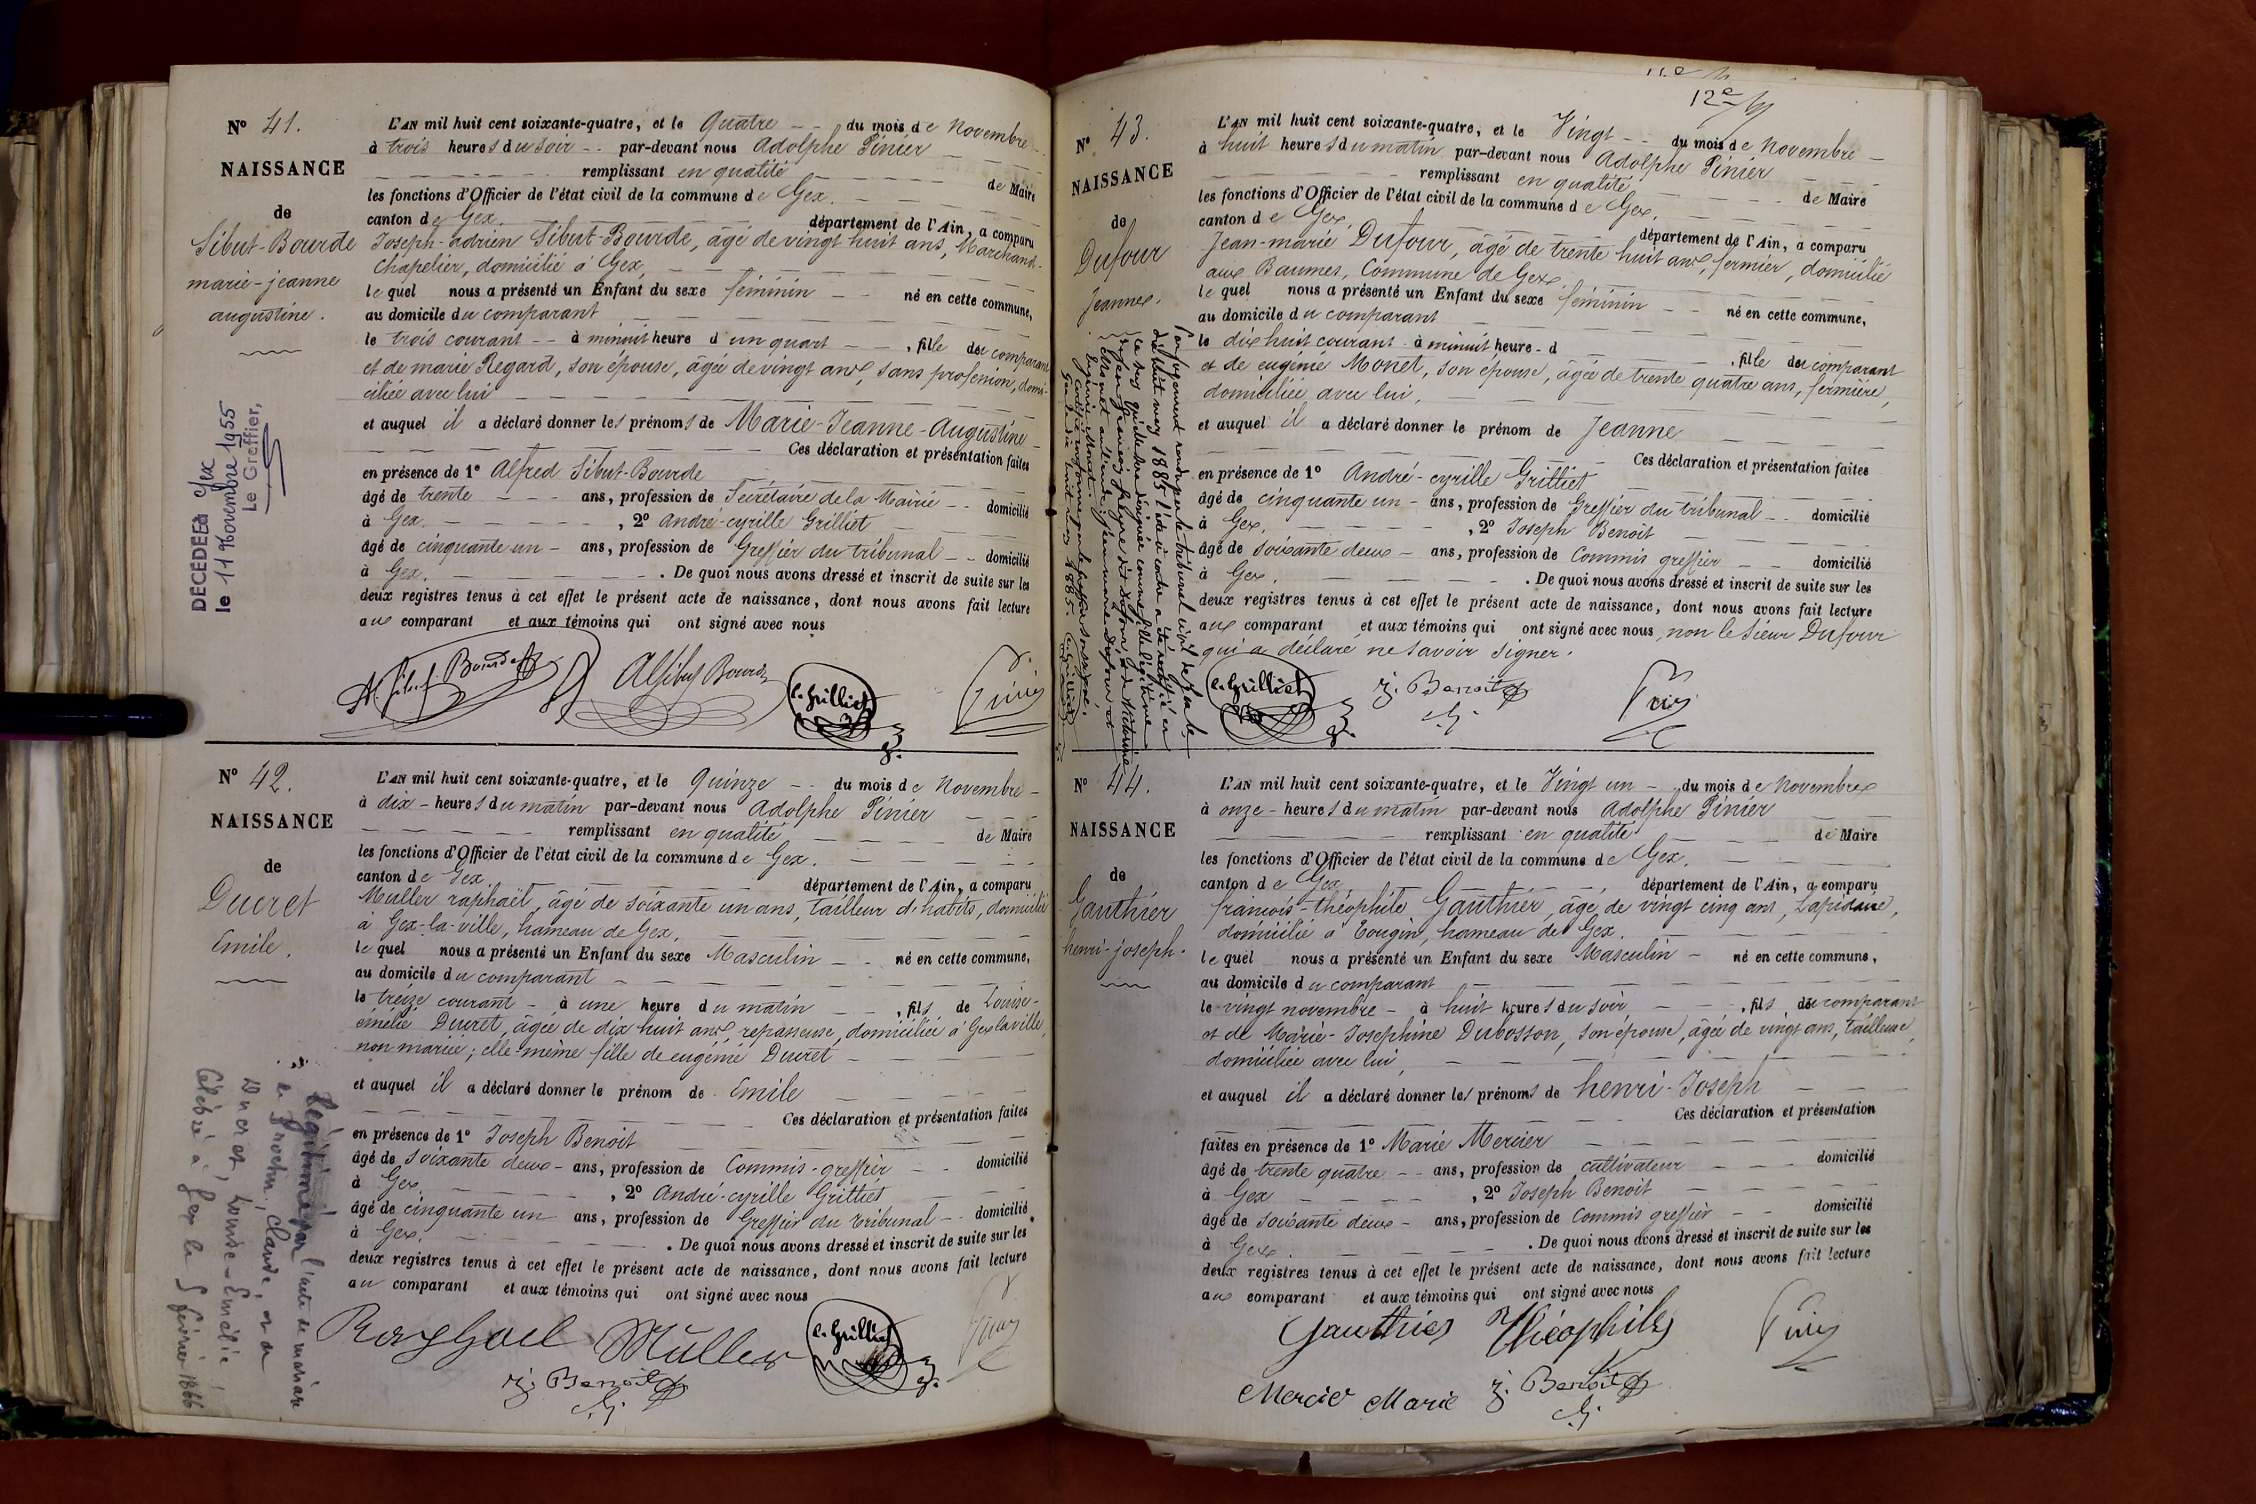 N° 41.
NAISSANCE
de
Sibut-Bourde
marie-jeanne
augustine.
L'AN mil huit cent soixante-quatre, et le Quatre -- du mois de Novembre -
à trois heures du soir -- par-devant nous Adolphe Pinier
remplissant en qualité de Maire
les fonctions d'Officier de l'état civil de la commune de Gex.
canton de Gex département de l'Ain, a comparu
Joseph-adrien Sibut-Bourde, âgé de vingt huit ans, Marchand-
Chapelier, domicilié à Gex,
le quel nous a présenté un Enfant du sexe féminin -- né en cette commune,
au domicile du comparant
le trois courant -- à minuit heure d'un quart -- , fille du comparant
et de marie Regard, son épouse, âgée de vingt ans, sans profession, domi-
ciliée avec lui
et auquel il a déclaré donner les prénoms de Marie-Jeanne-Augustine
Ces déclaration et présentation faites
en présence de 1° Alfred Sibut-Bourde
âgé de trente --- ans, profession de Secrétaire de la Mairie -- domicilié
à Gex. , 2° André-cyrille Grilliet
âgé de cinquante un - ans, profession de Greffier du tribunal -- domicilié
à Gex. . De quoi nous avons dressé et inscrit de suite sur les
deux registres tenus à cet effet le présent acte de naissance, dont nous avons fait lecture
aux comparant et aux témoins qui ont signé avec nous
A. Sibut Bourde Al Sibut Bourde c. Grilliet Pinier
DECEDEE à Gex
le 11 Novembre 1955
Le Greffier,
N° 42.
NAISSANCE
de
Ducret
Emile.
L'AN mil huit cent soixante-quatre, et le Quinze -- du mois de Novembre -
à dix - heures du matin par-devant nous Adolphe Pinier
remplissant en qualité de Maire
les fonctions d'Officier de l'état civil de la commune de Gex.
canton de Gex département de l'Ain, a comparu
Muller raphaël, âgé de soixante un ans, tailleur d'habits, domicilié
à Gex-la-ville, hameau de Gex,
le quel nous a présenté un Enfant du sexe Masculin -- né en cette commune,
au domicile du comparant
le treize courant - à une heure du matin -- , fils de Louise-
émélie Ducret, âgée de dix huit ans, repasseuse, domiciliée à Gex la ville,
non mariée; elle-même fille de eugénie Ducret
et auquel il a déclaré donner le prénom de Emile
Ces déclaration et présentation faites
en présence de 1° Joseph Benoit
âgé de soixante deux - ans, profession de Commis-greffier -- domicilié
à Gex , 2° André-cyrille Grilliet
âgé de cinquante un ans, profession de Greffier du tribunal -- domicilié
à Gex. . De quoi nous avons dressé et inscrit de suite sur les
deux registres tenus à cet effet le présent acte de naissance, dont nous avons fait lecture
au comparant et aux témoins qui ont signé avec nous
Raphael Muller c. Grilliet Pinier
j. Benoit
Légitimé par l'acte de mariage
de Brochin, Claude, et de
Ducret, Louise-Emélie
Célébré à Gex le 5 février 1866
12e
N° 43.
NAISSANCE
de
Dufour
Jeanne.
Par jugement rendu par le tribunal civil de Gex le
dix huit may 1885 l'acte ci contre a été rectifié en
L'AN mil huit cent soixante-quatre, et le Vingt -- du mois de Novembre -
à huit heures du matin par-devant nous Adolphe Pinier
remplissant en qualité de Maire
les fonctions d'Officier de l'état civil de la commune de Gex.
canton de Gex département de l'Ain, a comparu
Jean-marie Dufour, âgé de trente huit ans, fermier, domicilié
aux Baumes, Commune de Gex.
le quel nous a présenté un Enfant du sexe féminin -- né en cette commune,
au domicile du comparant
le dix huit courant - à minuit heure - d , fille du comparant
et de eugénie Monet, son épouse, âgée de trente quatre ans, fermière,
domiciliée avec lui,
et auquel il a déclaré donner le prénom de Jeanne
Ces déclaration et présentation faites
en présence de 1° André-cyrille Grilliet
âgé de cinquante un - ans, profession de Greffier du tribunal -- domicilié
à Gex. , 2° Joseph Benoit
âgé de soixante deux - ans, profession de Commis greffier -- domicilié
à Gex. . De quoi nous avons dressé et inscrit de suite sur les
deux registres tenus à cet effet le présent acte de naissance, dont nous avons fait lecture
aux comparant et aux témoins qui ont signé avec nous, non le sieur Dufour
qui a déclaré ne savoir signer.
c. Grilliet j. Benoit Pinier
N° 44.
NAISSANCE
de
Gauthier
henri-joseph.
L'AN mil huit cent soixante-quatre, et le Vingt un - du mois de Novembre
à onze - heures du matin par-devant nous Adolphe Pinier
remplissant en qualité de Maire
les fonctions d'Officier de l'état civil de la commune de Gex.
canton de Gex département de l'Ain, a comparu
françois-théophile Gauthier, âgé de vingt cinq ans, Lapidaire,
domicilié à Tougin, hameau de Gex.
le quel nous a présenté un Enfant du sexe Masculin - né en cette commune,
au domicile du comparant
le vingt novembre - à huit heures du soir , fils du comparant
et de Marie-Josephine Dubosson, son épouse, âgée de vingt ans, tailleuse,
domiciliée avec lui,
et auquel il a déclaré donner les prénoms de henri-Joseph
Ces déclaration et présentation
faites en présence de 1° Marie Mercier
âgé de trente quatre -- ans, profession de cultivateur domicilié
à Gex , 2° Joseph Benoit
âgé de soixante deux - ans, profession de Commis greffier -- domicilié
à Gex. . De quoi nous avons dressé et inscrit de suite sur les
deux registres tenus à cet effet le présent acte de naissance, dont nous avons fait lecture
aux comparant et aux témoins qui ont signé avec nous
Gauthier Théophile Pinier
Mercier Marie j. Benoit